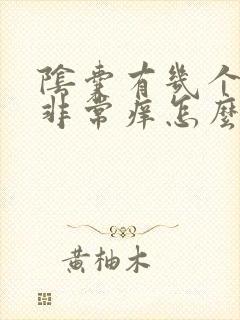 陰囊有幾个
非常痒怎麼
黄柚木